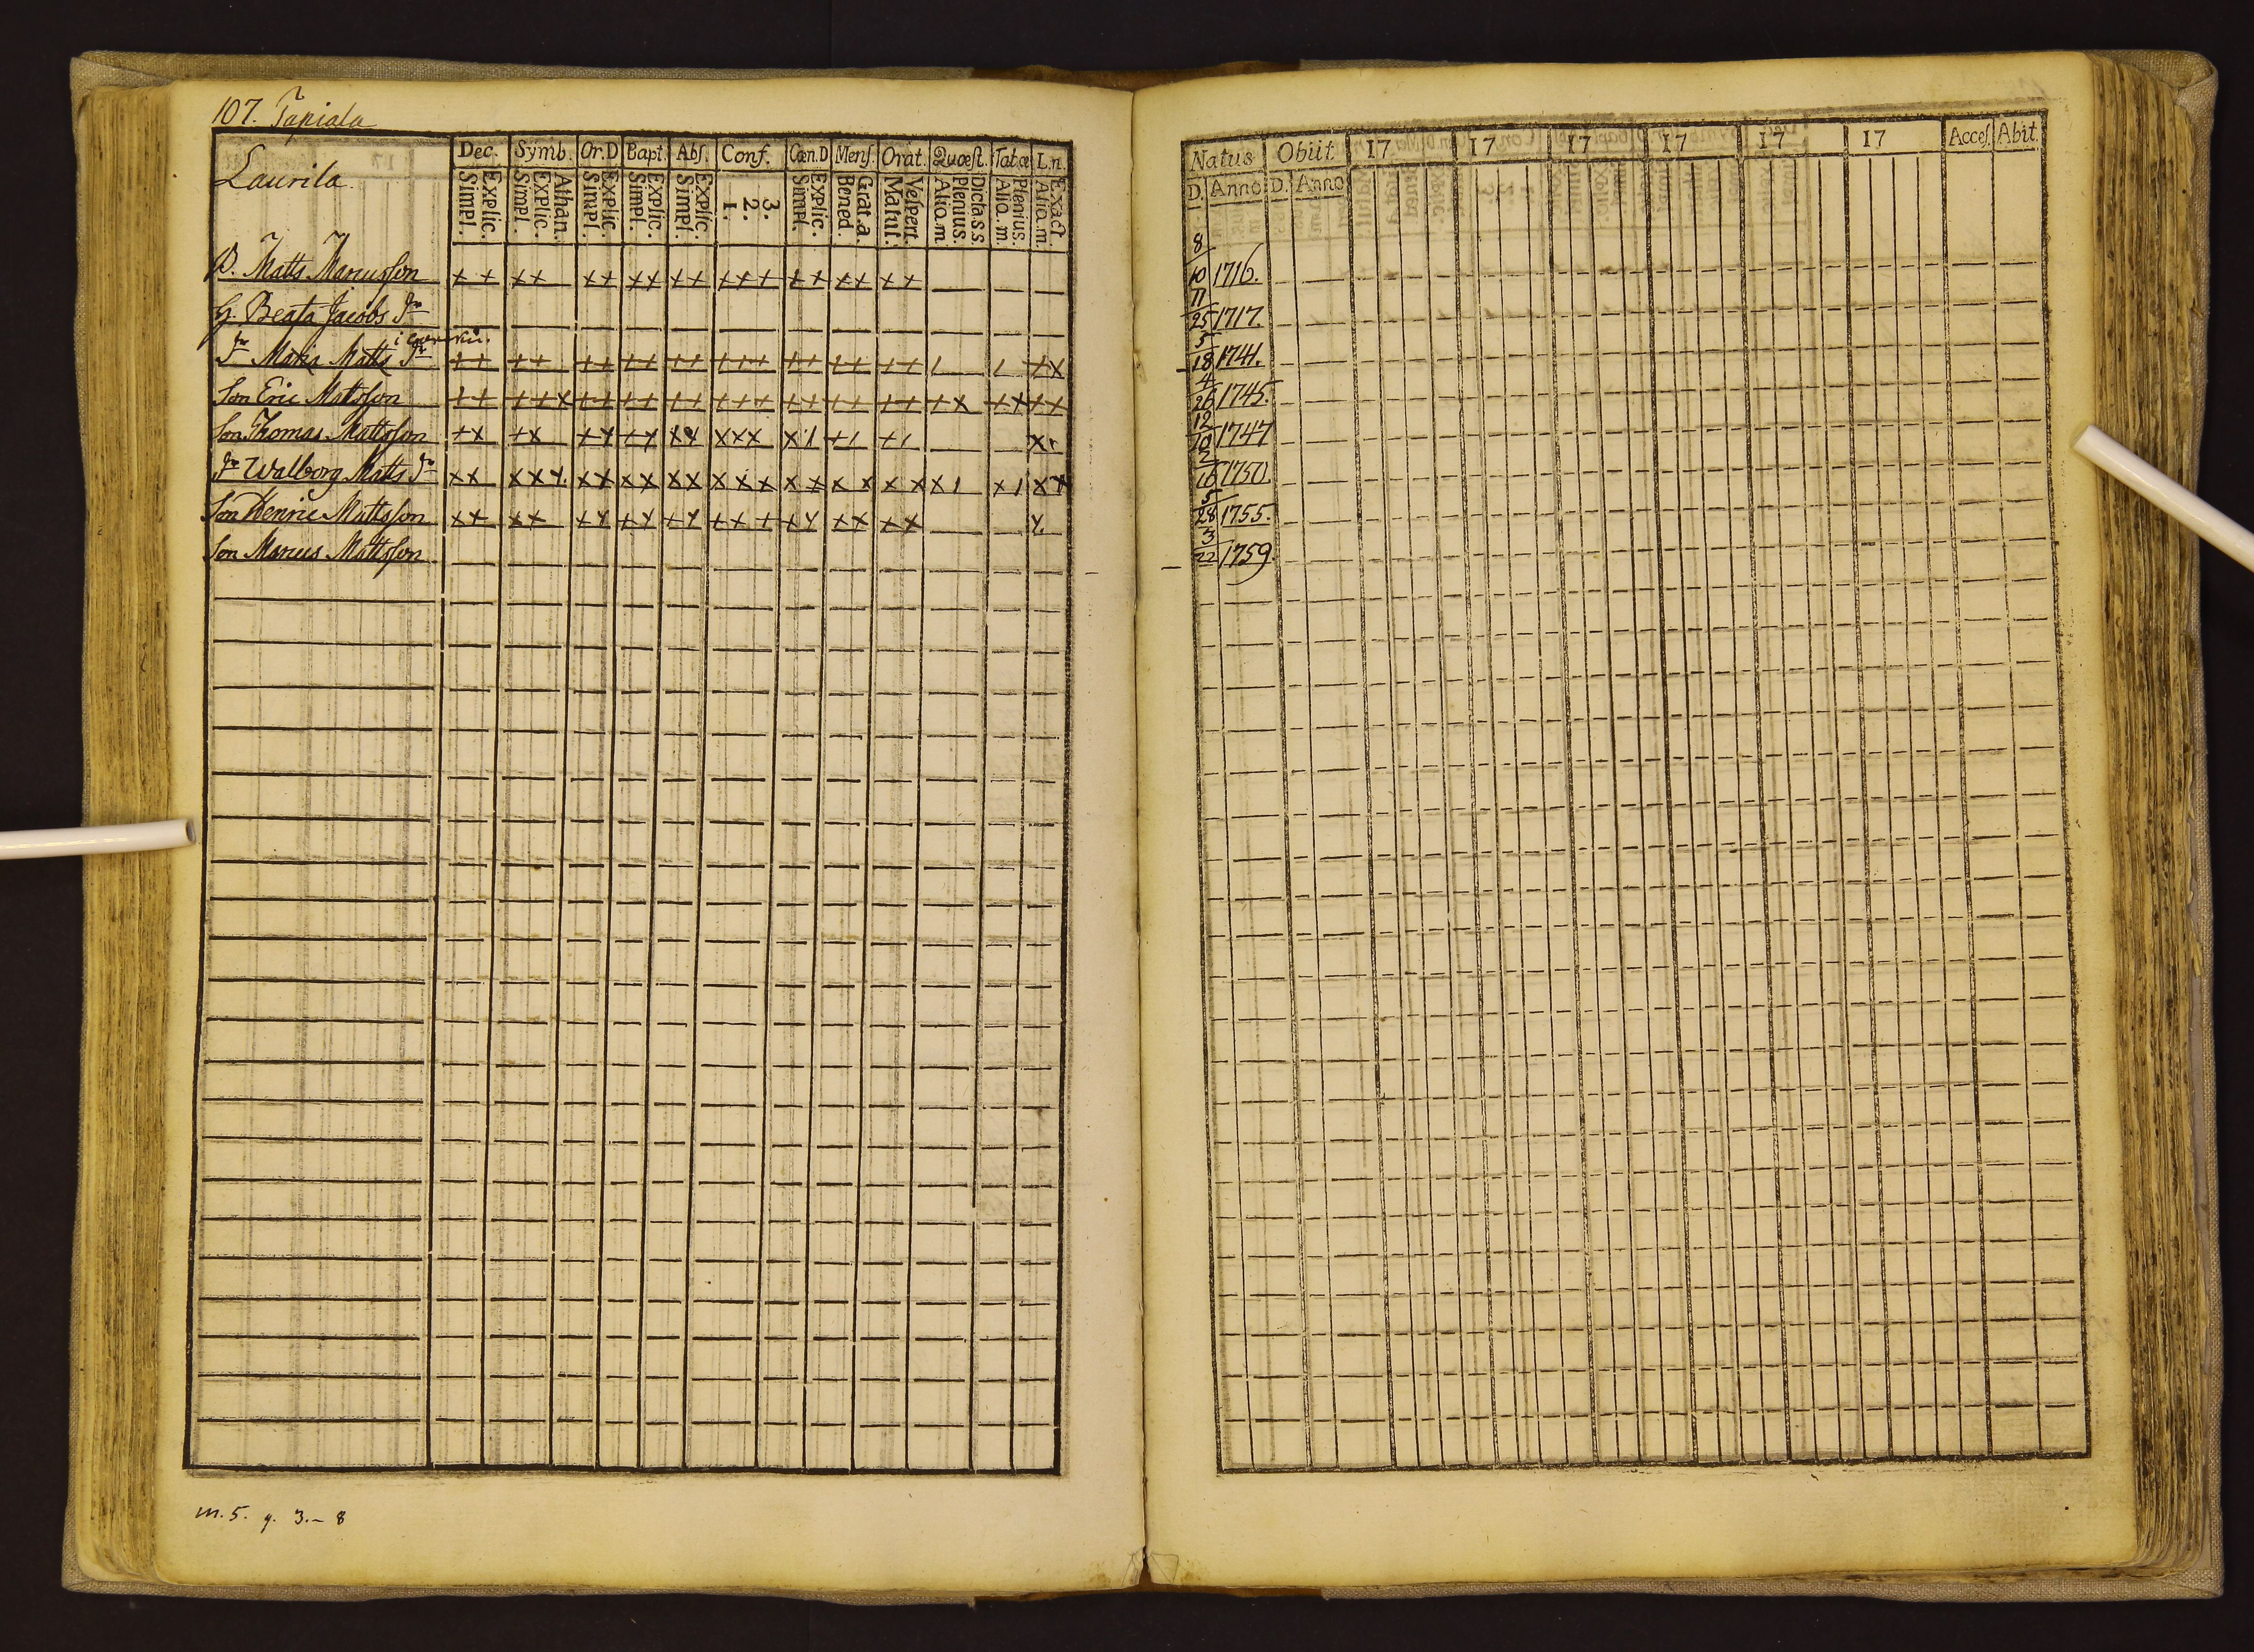 107. Tapiala
Laurila
Dec. Symb. Or.D Bapt. Abſ. Conf. Cœn.D Menſ. Orat. Quæſt. Tabæ L.n.
Simpl. Explic. Simpl. Explic. Athan. Simpl. Explic. Simpl. Explic. Simpl. Explic. 1. 2. 3. Simpl. Explic. Bened. Grat.a. Matut. Veſpert. Aliq.m. Plenius. Dicta.s.s. Aliq.m. Plenius. Aliq.m. Exact.
Natus Obiit 17 17 17 17 17 17 Acceſ. Abit
D. Anno D. Anno
B. Matts Marcusſon ++ ++ ++ ++ ++ +++ ++ ++ ++ 8/10 1716.
H. Beata Jacobs Dr 11/25 1717.
Dr Maria Matts Dr ++ ++ ++ ++ ++ +++ ++ ++ ++ / / +x 5/18 1741.
Son Eric Mattsſon ++ ++x ++ ++ ++ +++ ++ ++ ++ +x +x ++ 4/26 1745.
Son Thomas Mattsſon +x +x +x +x xx xxx x/ +/ +/ x 12/10 1747
Dr Walborg Matts Dr xx xxx xx xx xx xxx xx xx xx x/ x/ xx 2/16 1750.
Son Henric Mattsſon x+ x+ +x +x +x +++ +x xx xx x 5/28 1755.
Son Marcus Mattsſon 3/22 1759.
m. 5. q. 3.- 8